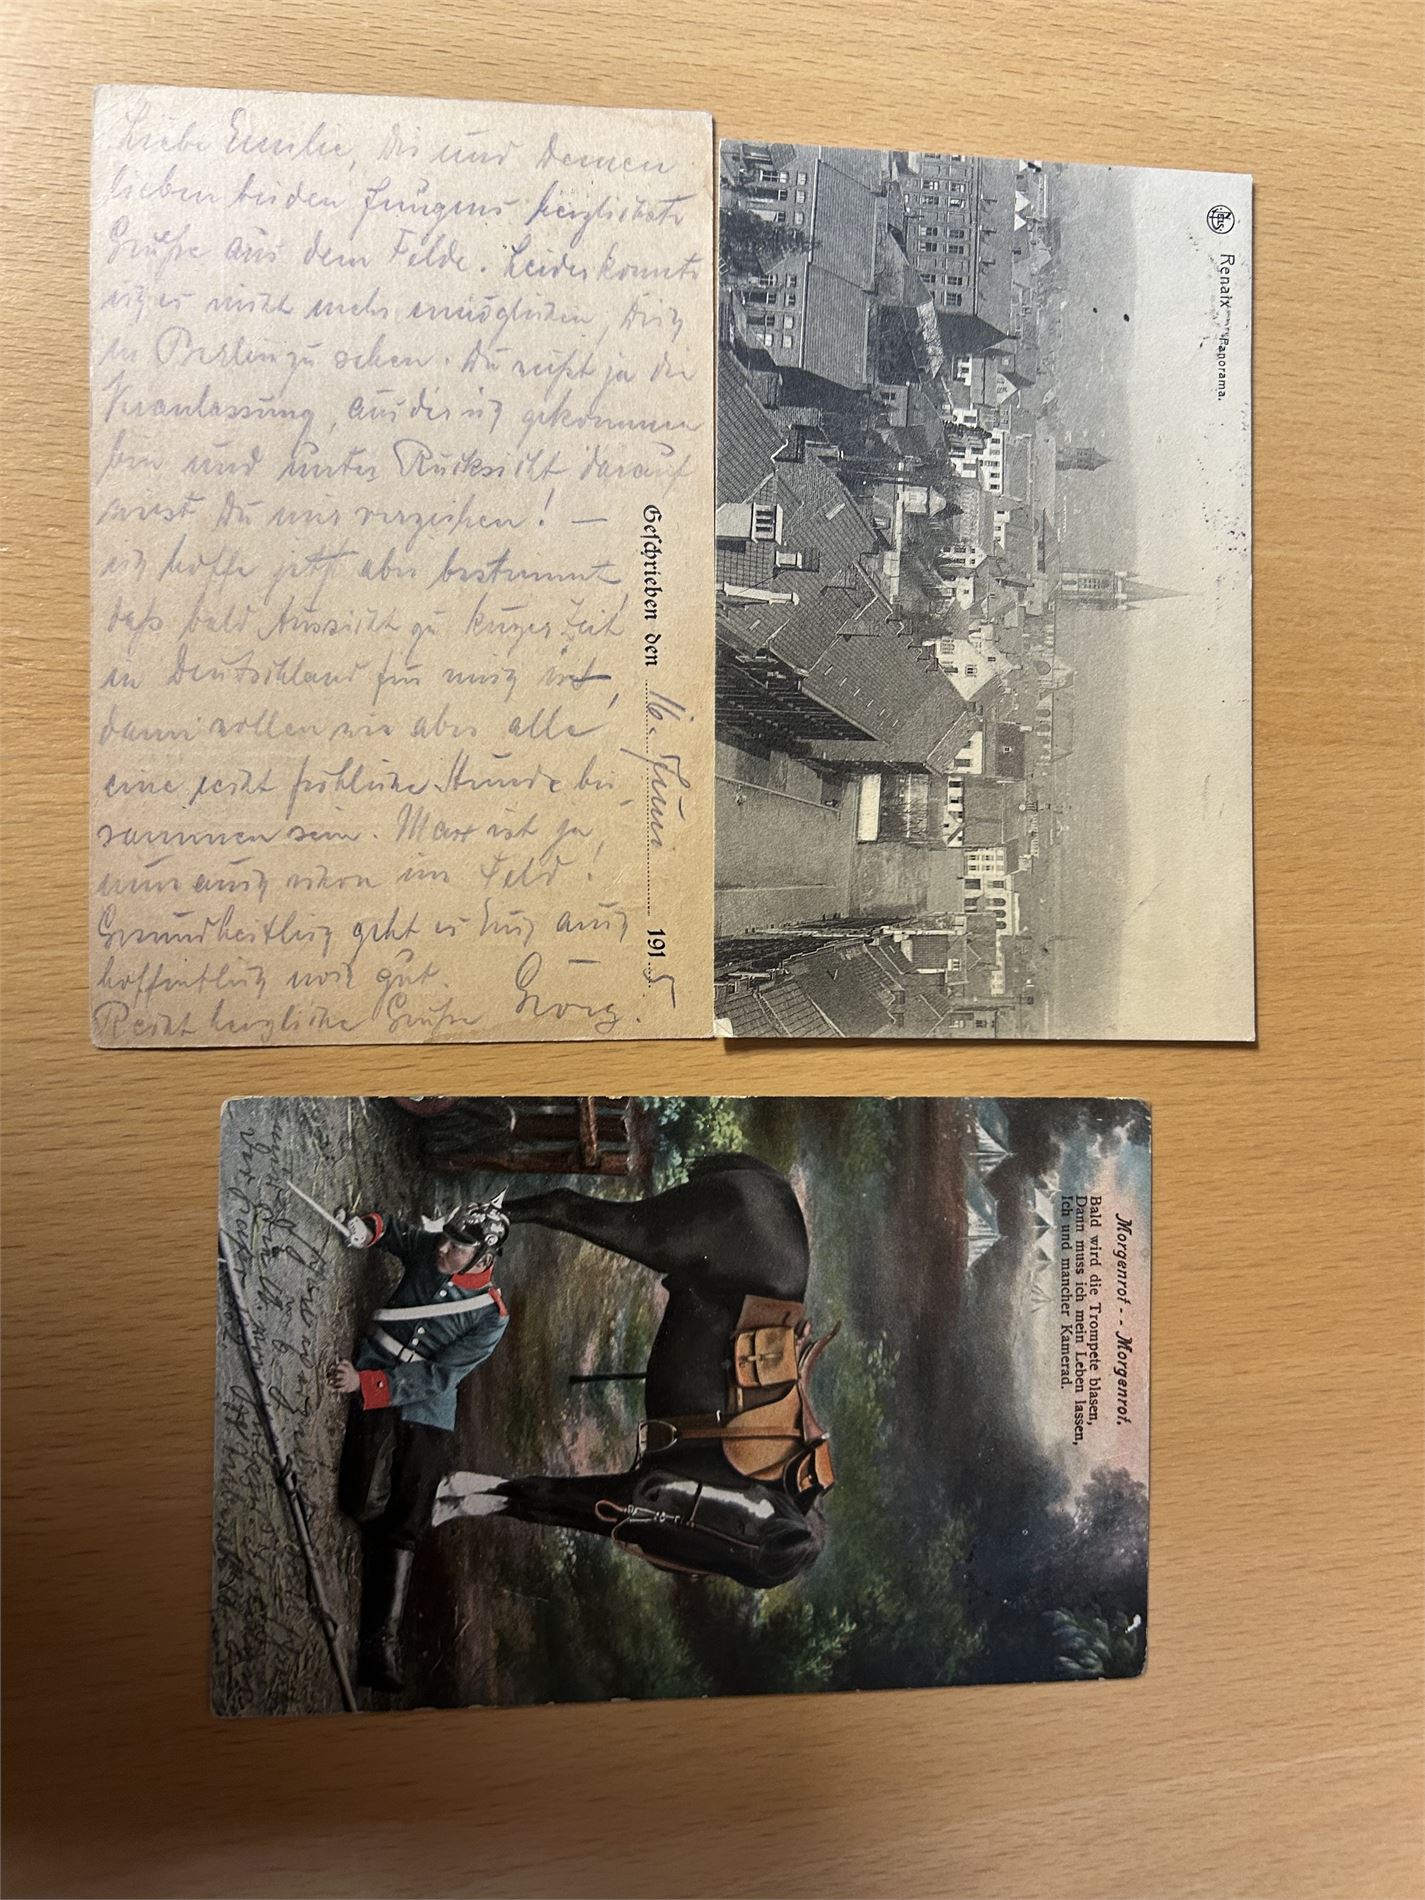 Liebe Emilie, Dir und Deinen
lieben beiden Jungens herzlichste
Grüße aus dem Felde. Leider konnte
ich es nicht mehr ermöglichen, Dich
in Berlin zu sehen. Du weißt ja die
Veranlassung, aus der ich gekommen
bin und unter Rücksicht darauf
wirst Du mir verzeihen! —
ich hoffe jetzt aber bestimmt,
daß bald Aussicht zu kurzer Zeit
in Deutschland für mich ist,
dann wollen wir aber alle
eine recht fröhliche Stunde bei-
sammen sein. Max ist ja,
nun auch schon im Feld!
Gesundheitlich geht es Euch auch
hoffentlich noch gut.
Recht herzliche Grüße Georg.
Geschrieben den 16. Juni 1915
Nels
Renaix Panorama.
Morgenrot - - Morgenrot.
Bald wird die Trompete blasen,
Dann muss ich mein Leben lassen,
Ich und mancher Kamerad.